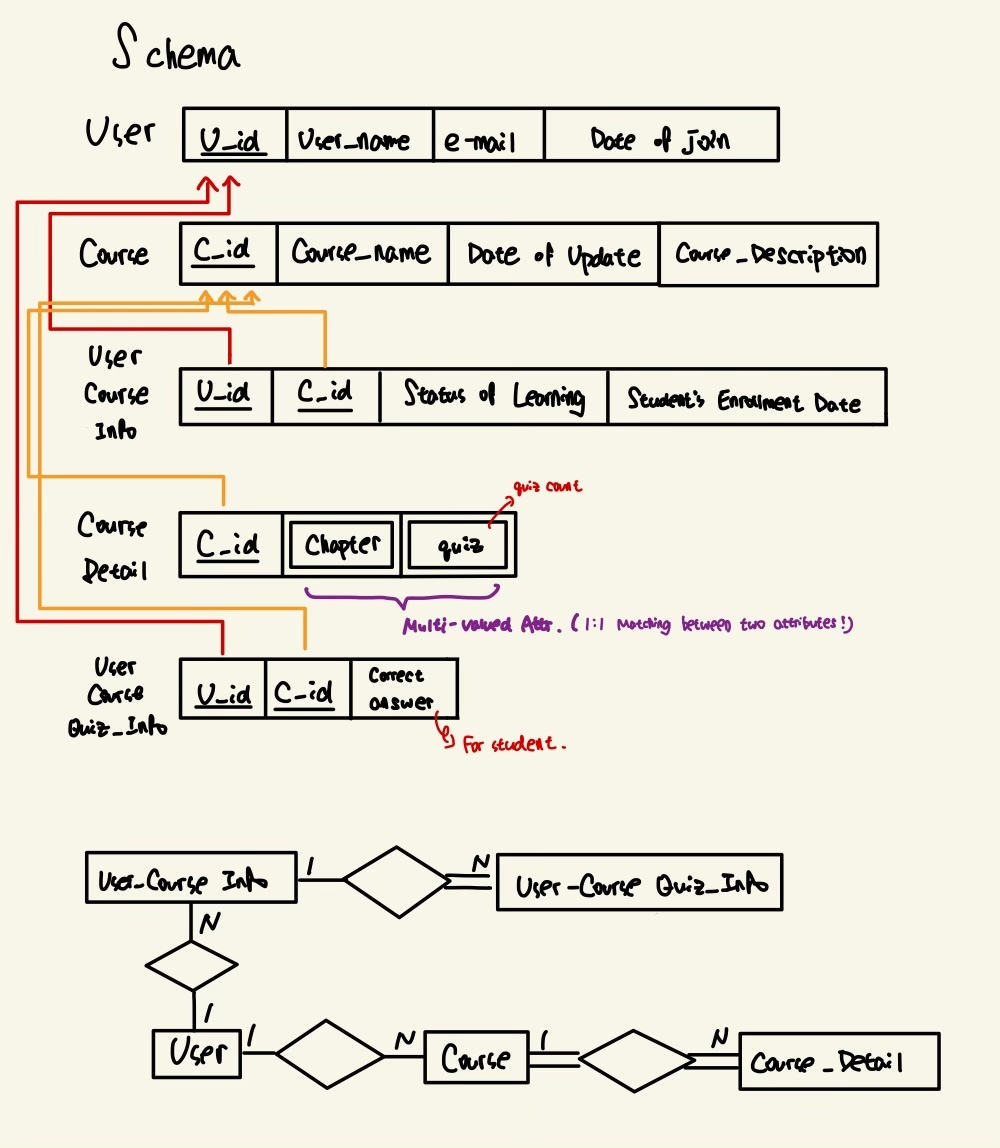 Schema
User U_id User_name e-mail Date of Join
Course C_id Course_name Date of Update Course_Description
User
Course
Info
U_id C_id Status of Learning Student's Enrollment Date
quiz count
Course
Detail
C_id Chapter quiz
Multi-valued Attr. (1:1 Matching between two attributes!)
User
Course
Quiz_Info
U_id C_id Correct
answer
For student.
User-Course Info 1 N User-Course Quiz_Info
N
1
User 1 N Course 1 N Course_Detail